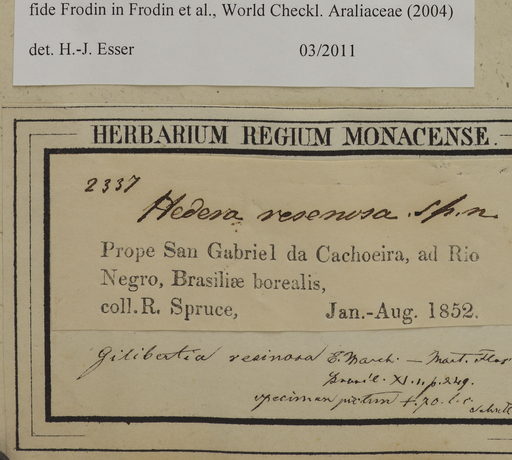 fide Frodin in Frodin et al., World Checkl. Araliaceae (2004)
det. H.-J. Esser 03/2011
HERBARIUM REGIUM MONACENSE.
2337
Hedera resenosa. sp. n.
Prope San Gabriel da Cachoeira, ad Rio
Negro, Brasiliæ borealis,
coll. R. Spruce, Jan.-Aug. 1852.
Gilibertia resinosa E. March. — Mart. Flor.
Brasil. XI. 1. p. 249.
specimen pictum t. 70. l. c.